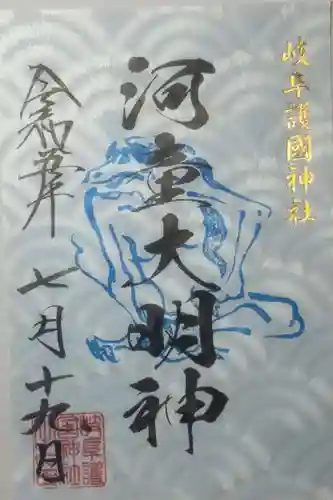 岐阜護國神社
河童大明神
令和五年
七月十九日
岐阜護
國神社